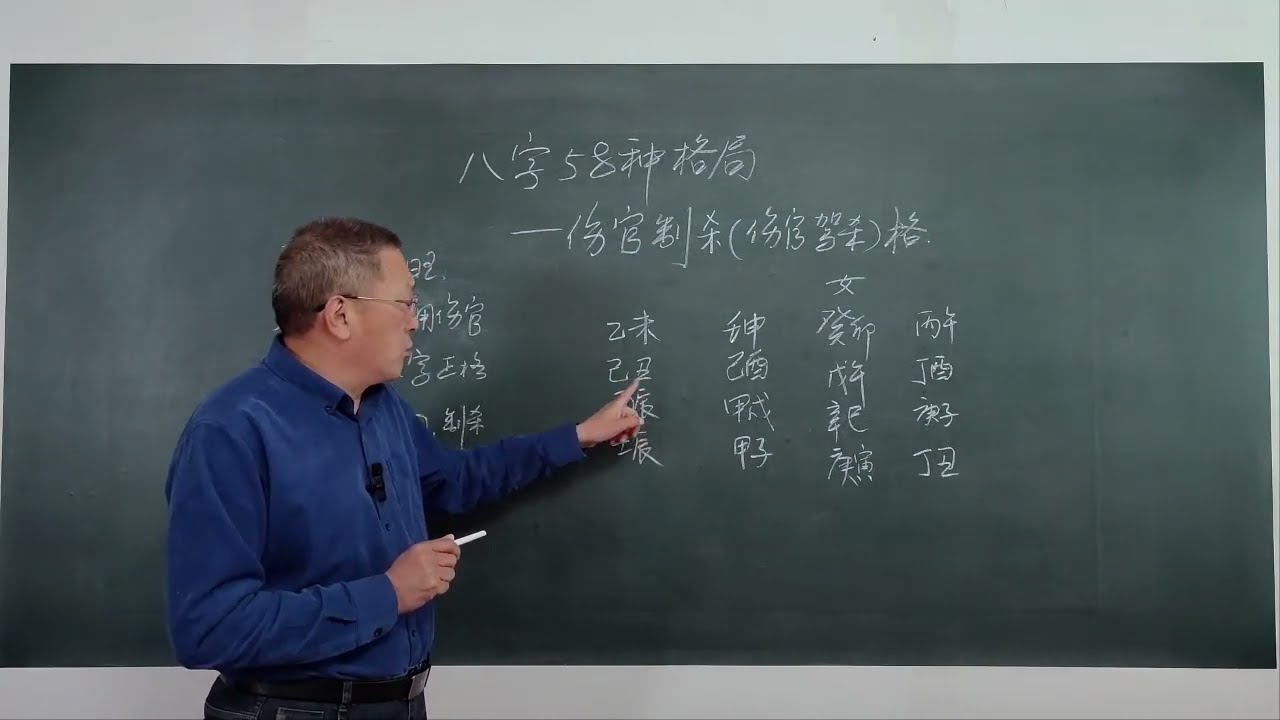 八字58种格局
—伤官制杀(伤官驾杀)格.
旺,
用伤官
字正格
制杀
女
乙未 壬申 癸卯 丙午
己丑 己酉 戊午 丁酉
辰 甲戌 辛巳 庚子
辰 甲子 庚寅 丁丑